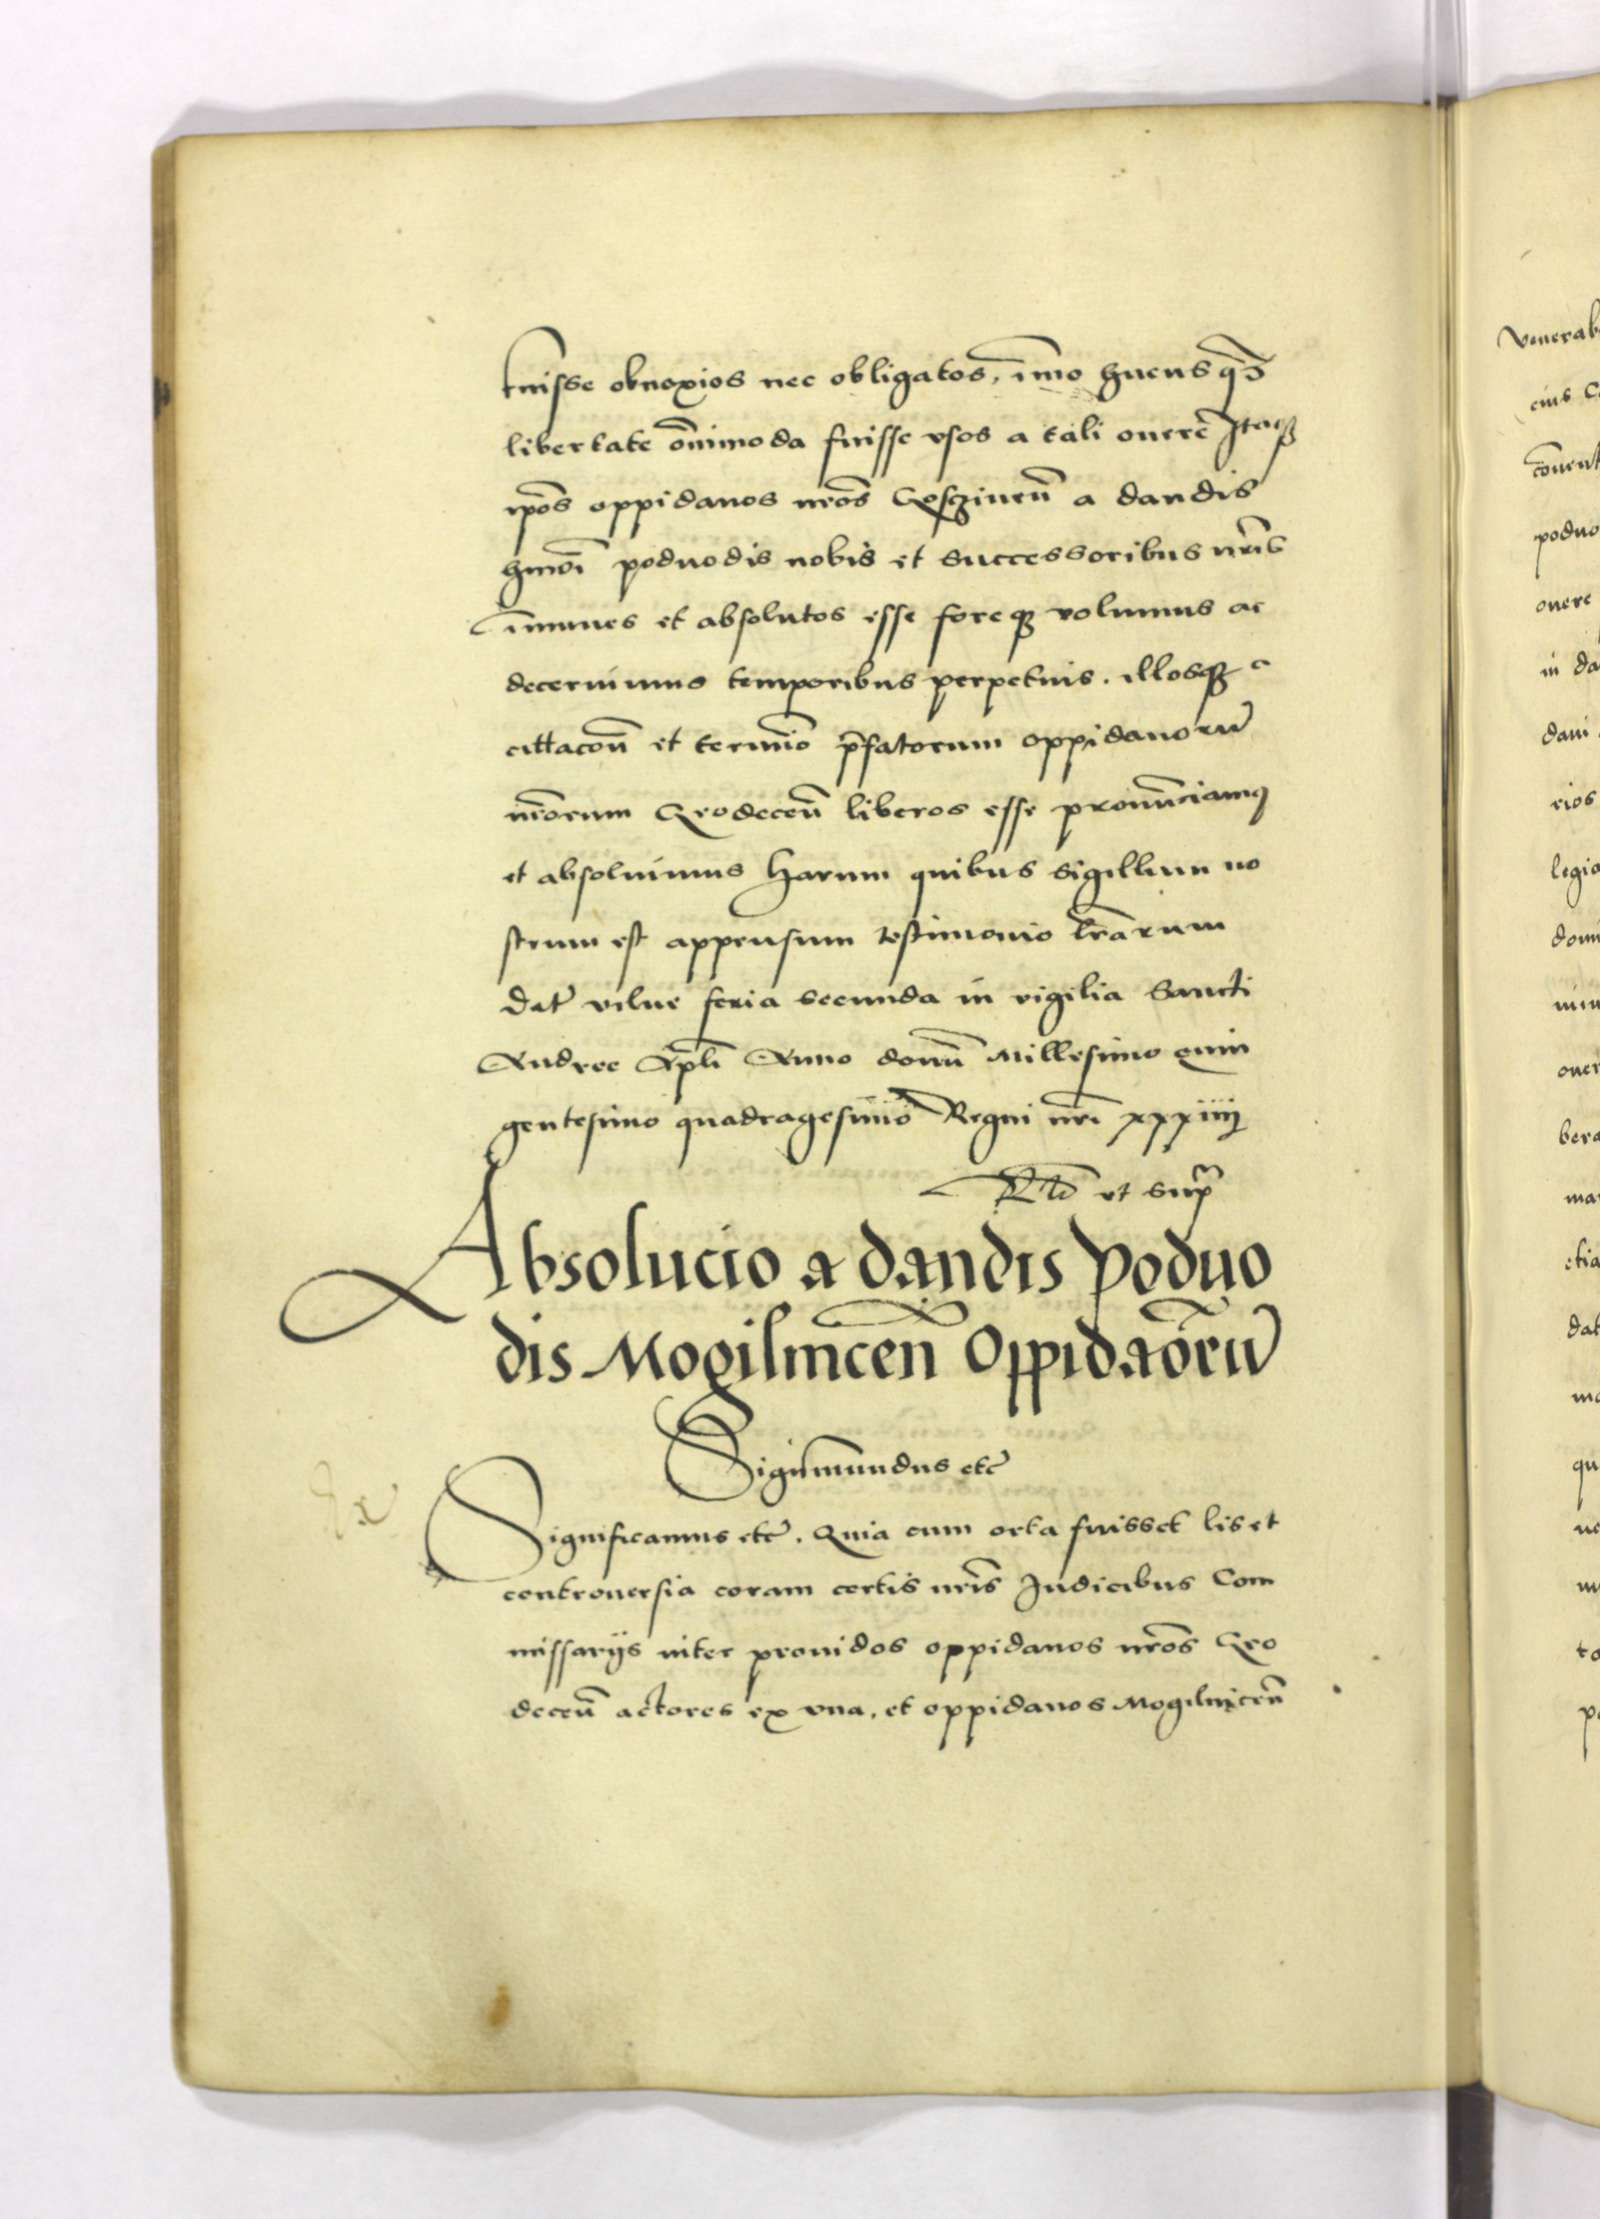 fuisse obnoxios nec obligatos, ĩmo hucusq̃
libertate om̃imoda fuisse vsos a tali onere Itaq
ip̃os oppidanos nr̃os Gosczinen̄ a dandis
hmõi poduodis nobis et successoribus nr̃is
ĩmunes et absolutos esse foreq volumus ac
decernimus temporibus perpetuis. illosq a
cittacon̄ et termĩo p̃fatorum oppidanorũ
nr̃orum Grodecen̄ liberos esse pronũciamus
et absoluimus harum quibus sigillum no
strum est appensum testimonio lr̃arum
Dat̃ vilne feria secunda in vigilia Sancti
Andree Apl̃i Anno domĩ Millesimo quin
gentesimo quadragesimo Regni nr̃i xxxiiij
Rl̃o vt supˀ
Absolucio a dandis Poduo
dis Mogilnicen̄ Oppidãorũ
Sigismundus etc̃
Significamus etc̃. Quia cum orta fuisset lis et
controuersia coram certis nr̃is Judicibus Com
missarijs inter prouidos oppidanos nr̃os Gro
decen̄ actores ex vna, et oppidanos Mogilnicen̄
Venerab
eius C
conuent
poduo
onere
in da
dani
rios
legio
domi
oner
bera
mar
etia
dat
mo
qu
to
po